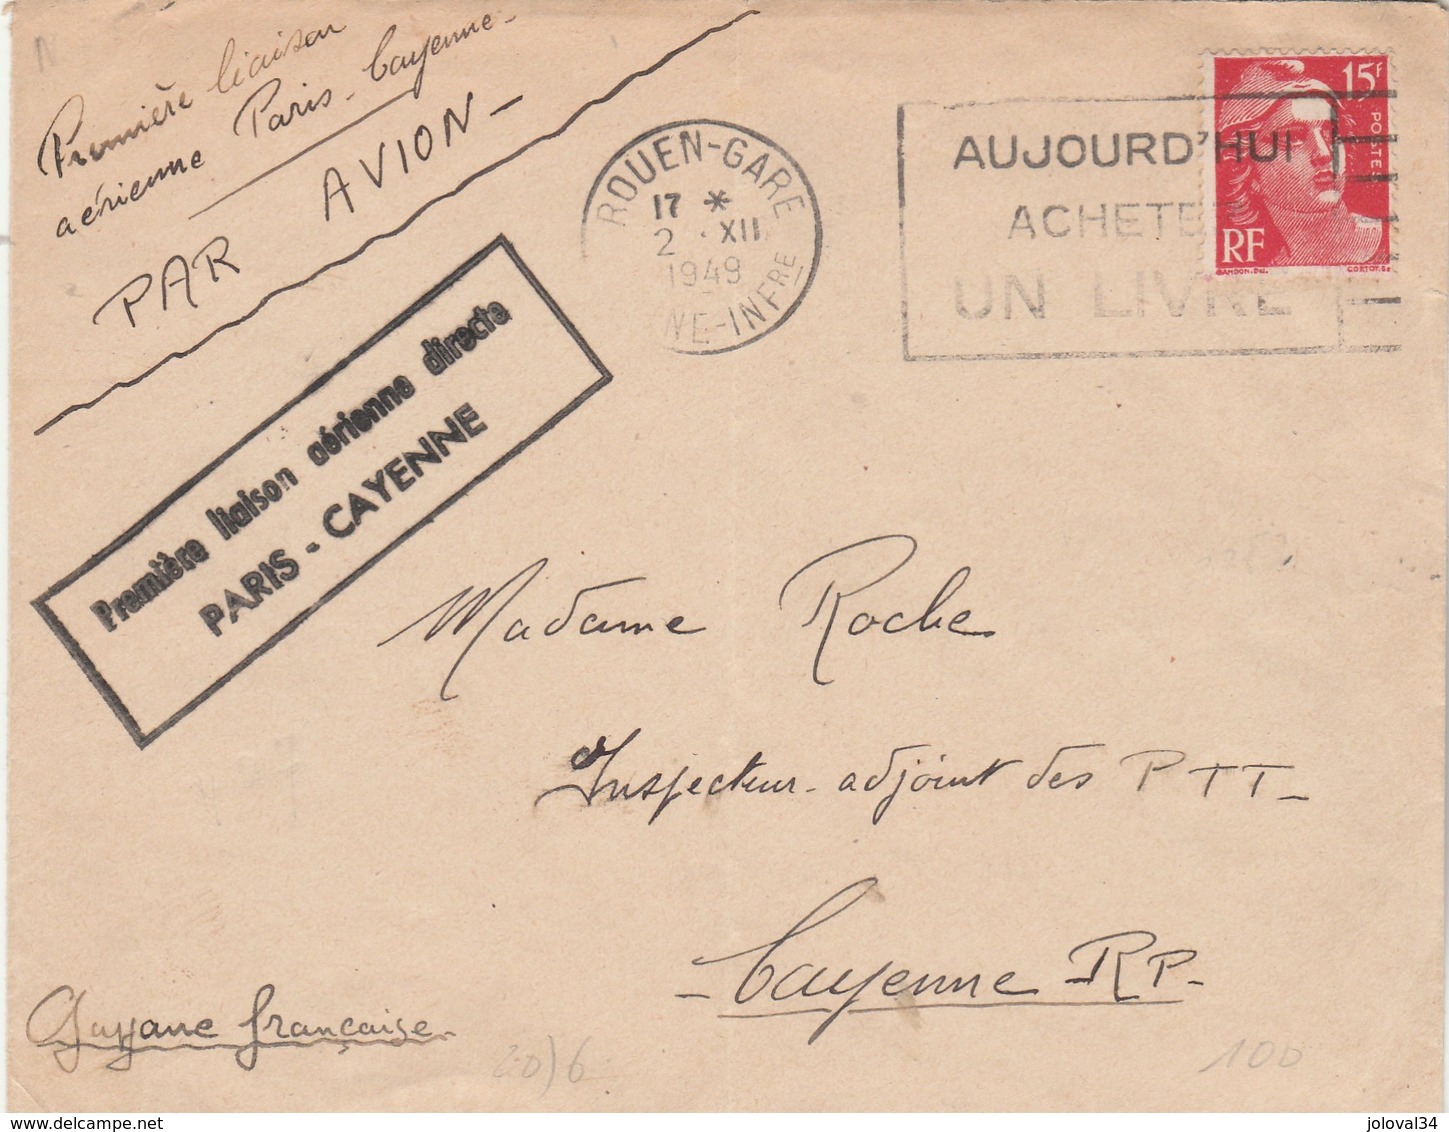 Première liaison
aérienne Paris - Cayenne -
PAR AVION -
ROUEN-GARE
17 *
2 . XII
1949
NE-INFRE
AUJOURD'HUI
ACHETE
UN LIVRE
15F
POSTE
RF
GANDON.Del.
CORTOT.Sc
Première liaison aérienne directe
PARIS - CAYENNE
Madame Roche
Inspecteur - adjoint des PTT -
- Cayenne RP -
Guyane française -
20)6
100
joloval34